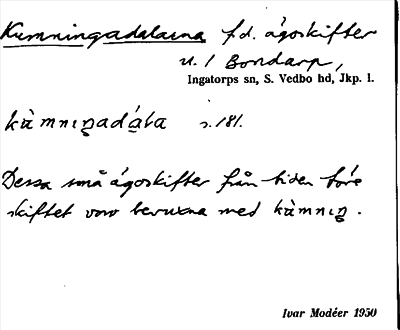 Kumningadalarna f.d. ägoskiften
u. 1 Bondarp,
Ingatorps sn, S. Vedbo hd, Jkp. l.
kùmnıŋadáɩa s. 181.
Dessa små ägoskiften från tiden före
skiftet voro bevuxna med kùmnıŋ.
Ivar Modéer 1950